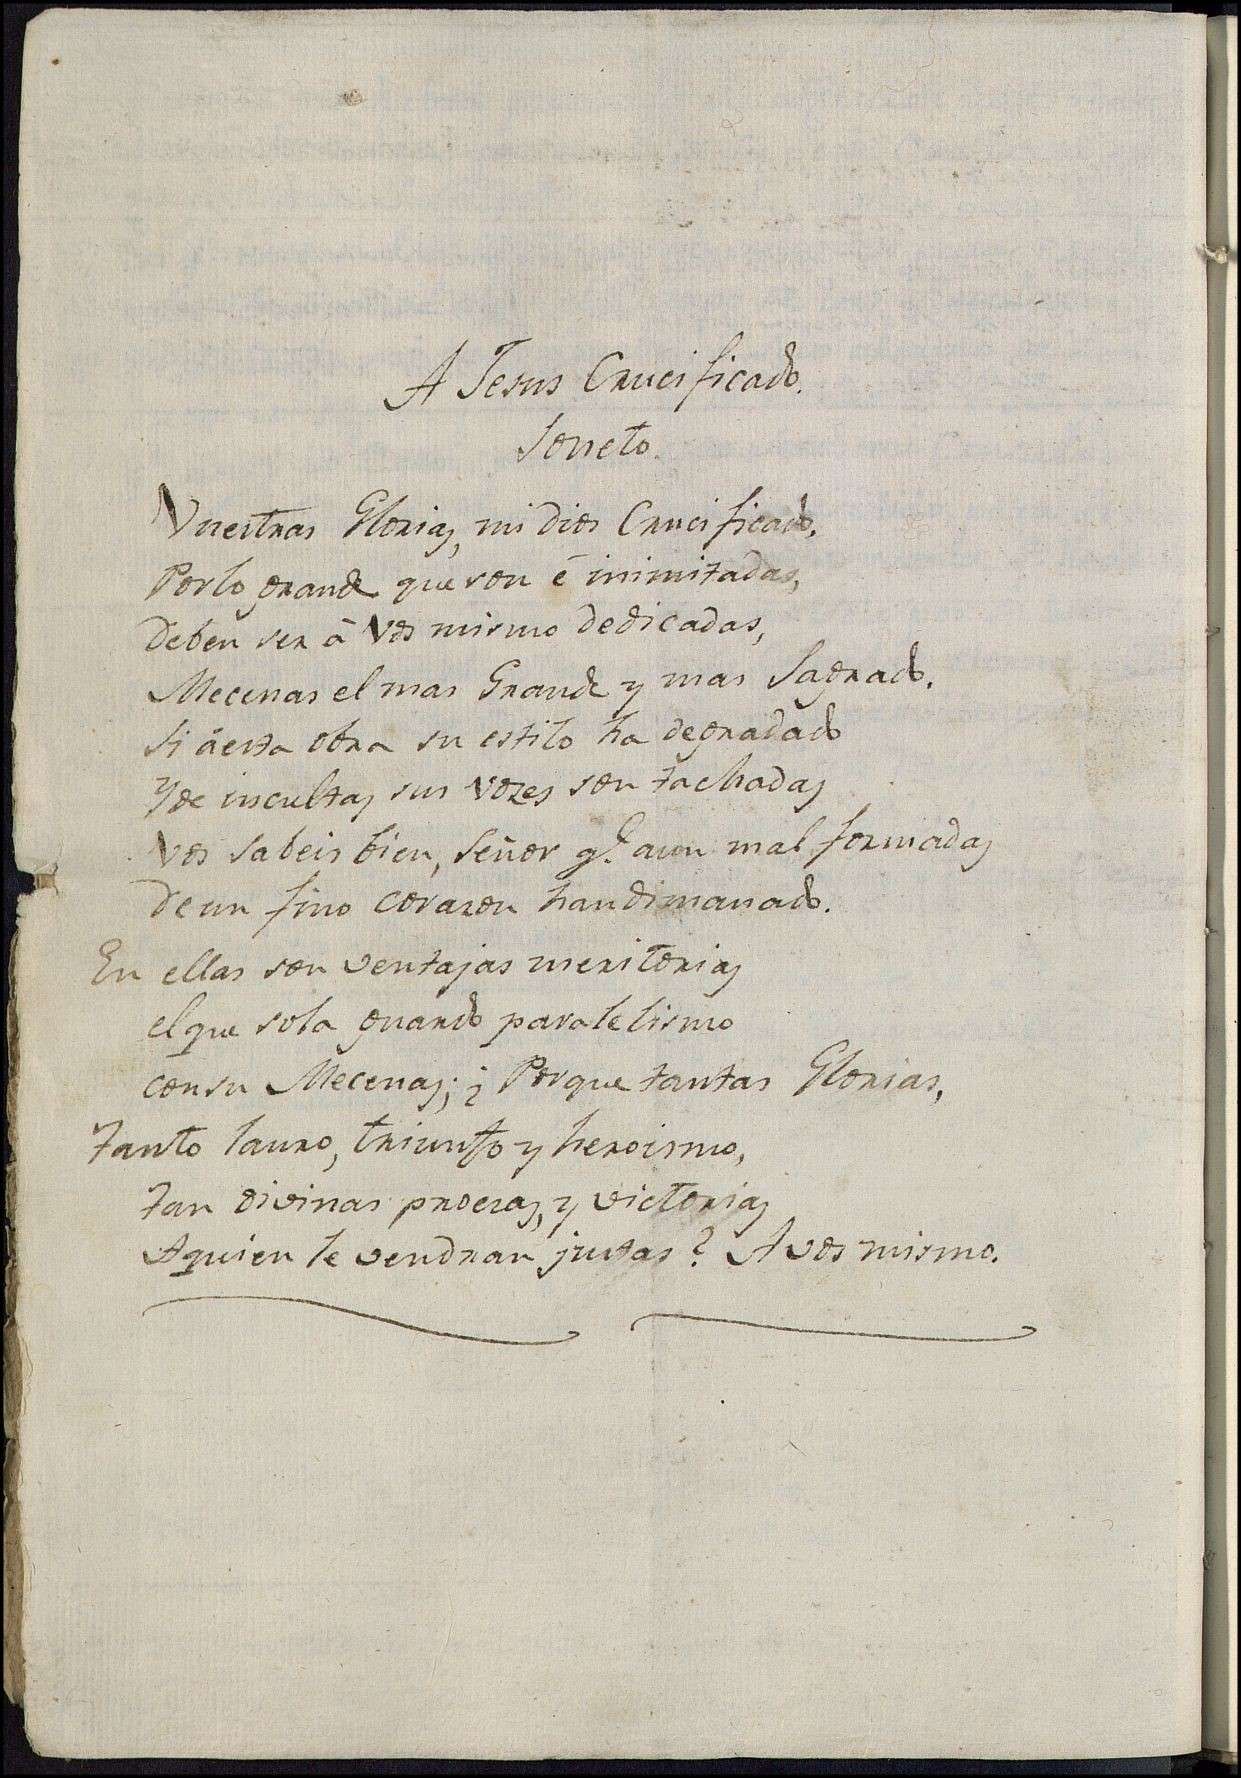 A Jesus Crucificado.
Soneto.
Vuestras Glorias, mi Dios Crucificado,
Por lo grande que son é inimitadas,
Deben ser á Vos mismo dedicadas,
Mecenas el mas Grande y mas Sagrado.
Si á esta obra su estilo ha degradado
Y de incultas sus vozes son tachadas
Vos sabeis bien, Señor q.e aun mal formadas
De un fino corazon han dimanado.
En ellas son ventajas meritorias
el que sola guardó paralelismo
con su Mecenas; ¿Porque tantas Glorias,
tanto lauro, triunfo y heroismo,
tan divinas proezas, y victorias
A quien le vendran justas? A vos mismo.